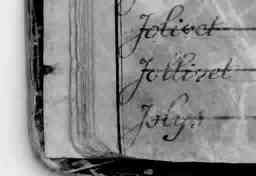 Jolivet
Jollivet
Jolys